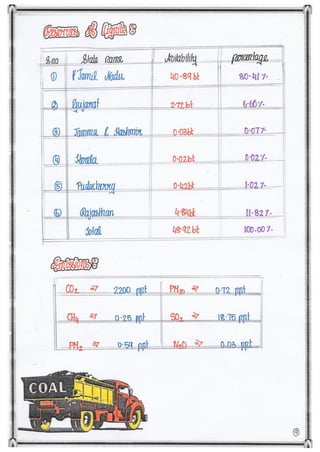 Reserves of Lignite :
S no State name Availability percentage
① Tamil Nadu 40.89 bt 80.41 %
② Gujarat 2.72 bt 6.66 %
③ Jammu & Kashmir 0.03 bt 0.07 %
④ Kerala 0.02 bt 0.02 %
⑤ Puducherry 0.42 bt 1.02 %
⑥ Rajasthan 4.84 bt 11.82 %
Total 48.92 bt 100.00 %
Emissions :
CO₂ ⇒ 2200 ppt PM₁₀ ⇒ 0.72 ppt
CH₄ ⇒ 0.25 ppt SO₂ ⇒ 18.75 ppt
PM₂ ⇒ 0.59 ppt N₂O ⇒ 0.03 ppt
COAL